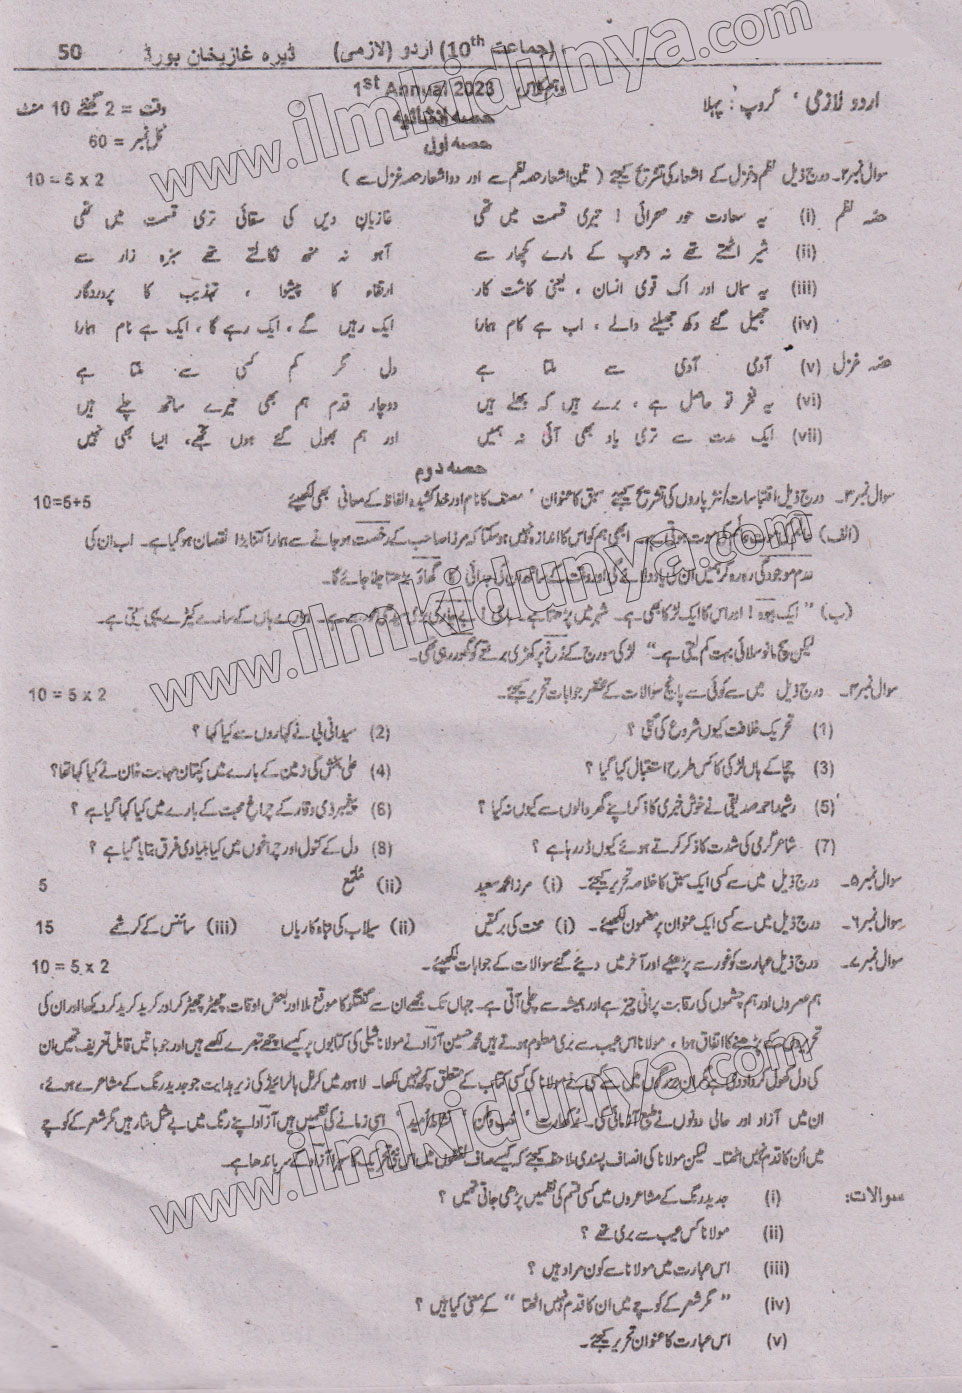 50 ڈیرہ غازیخان بورڈ (جماعت 10th) اردو (لازمی)
اردو لازمی ' گروپ : پہلا 1st Annual 2023 وقت = 2 گھنٹے 10 منٹ
حصہ انشائیہ
حصہ اولیٰ کل نمبر = 60
سوال نمبر ۲۔ درج ذیل نظم و غزل کے اشعار کی تشریح کیجئے ( تین اشعار حصہ نظم سے اور دو اشعار حصہ غزل سے ) 10 = 5 x 2
حصہ نظم (i) یہ سعادت حور صحرائی ! تیری قسمت میں تھی غازیان دیں کی سقائی تری قسمت میں تھی
(ii) شیر اٹھتے تھے نہ دھوپ کے مارے کچھار سے آہو نہ منہ نکالتے تھے سبزہ زار سے
(iii) یہ سماں اور اک قوی انسان ، یعنی کاشت کار ارتقاء کا پیشوا ، تہذیب کا پروردگار
(iv) جھیل گئے دکھ جھیلنے والے ، اب ہے کام ہمارا ایک رہیں گے ، ایک رہے گا ، ایک ہے نام ہمارا
حصہ غزل (v) آدمی آدمی سے ملتا ہے دل مگر کم کسی سے ملتا ہے
(vi) یہ فخر تو حاصل ہے ، برے ہیں کہ بھلے ہیں دوچار قدم ہم بھی تیرے ساتھ چلے ہیں
(vii) ایک مدت سے تری یاد بھی آئی نہ ہمیں اور ہم بھول گئے ہوں تجھے، ایسا بھی نہیں
حصہ دوم
سوال نمبر ۳۔ درج ذیل اقتباسات/نثر پاروں کی تشریح کیجئے سبق کا عنوان ' مصنف کا نام اور خط کشیدہ الفاظ کے معانی بھی لکھیئے 10=5+5
(الف) عالم کی موت عالم کی موت ہوتی ہے۔ ابھی ہم کو اس کا اندازہ نہیں ہو سکتا کہ مرزا صاحب کے رخصت ہو جانے سے ہمارا کتنا بڑا نقصان ہو گیا ہے۔ اب ان کی
عدم موجودگی رہ رہ کر ہمیں ان کی یاد دلائے گی اور وقت کے ساتھ ان کی جدائی کا گھاؤ بڑھتا چلا جائے گا۔
(ب) " ایک بیوہ ! اور اس کا ایک لڑکا بھی ہے۔ شہر میں پڑھتا ہے۔ بے چاری ہمارے ہاں کے سارے کپڑے یہی سیتی ہے۔
لیکن سچ مانو سلائی بہت کم لیتی ہے۔" لڑکی سورج کے رخ پر کھڑی برقعے کو گھور رہی تھی۔
سوال نمبر ۴۔ درج ذیل میں سے کوئی سے پانچ سوالات کے مختصر جوابات تحریر کیجئے۔ 10 = 5 x 2
(1) تحریک خلافت کیوں شروع کی گئی ؟ (2) سیدانی بی نے کہاروں سے کیا کہا ؟
(3) چچا کے ہاں لڑکی کا کس طرح استقبال کیا گیا ؟ (4) علی بخش کی زمین کے بارے میں کپتان مہابت خان نے کیا کہا تھا؟
(5) رشید احمد صدیقی نے خوش خبری کا ذکر اپنے گھر والوں سے کیوں نہ کیا ؟ (6) پیغمبر ذی وقار کے چراغ محبت کے بارے میں کیا کہا گیا ہے ؟
(7) شاعر گرمی کی شدت کا ذکر کرتے ہوئے کیوں ڈر رہا ہے ؟ (8) دل کے کنول اور چراغوں میں کیا بنیادی فرق بتایا گیا ہے ؟
سوال نمبر ۵۔ درج ذیل میں سے کسی ایک سبق کا خلاصہ تحریر کیجئے۔ (i) مرزا محمد سعید (ii) ملمع 5
سوال نمبر ۶۔ درج ذیل میں سے کسی ایک عنوان پر مضمون لکھیئے۔ (i) محنت کی برکتیں (ii) سیلاب کی تباہ کاریاں (iii) سائنس کے کرشمے 15
سوال نمبر ۷۔ درج ذیل عبارت کو غور سے پڑھیئے اور آخر میں دیئے گئے سوالات کے جوابات لکھیئے۔ 10 = 5 x 2
ہم عصروں اور ہم چشموں کی رقابت پرانی چیز ہے اور ہمیشہ سے چلی آتی ہے۔ جہاں تک مجھے ان سے گفتگو کا موقع ملا اور بعض اوقات چھیڑ چھیڑ کر اور کرید کرید کر دیکھا اور ان کی
تحریروں کے پڑھنے کا اتفاق ہوا ، مولانا اس عیب سے بری معلوم ہوتے ہیں محمد حسین آزاد نے مولانا شبلی کی کتابوں پر کیسے اچھے تبصرے لکھے ہیں اور جو باتیں قابل تعریف تھیں ان
کی دل کھول کر داد دی ہے مگر ان بزرگوں میں سے کسی نے مولانا کی کسی کتاب کے متعلق کچھ نہیں لکھا۔ لاہور میں کرنل ہالرائیڈ کی زیر ہدایت جو جدید رنگ کے مشاعرے ہوئے،
ان میں آزاد اور حالی دونوں نے طبع آزمائی کی۔ برکھارت ' حب وطن ' نشاط امید ' اسی زمانے کی نظمیں ہیں آزاد اپنے رنگ میں بے مثل نثار ہیں مگر شعر کے کوچے
میں ان کا قدم نہیں اٹھتا۔ لیکن مولانا کی انصاف پسندی ملاحظہ کیجئے کہ کیسے صاف لفظوں میں اس نئی تحریک کا سہرا آزاد کے سر باندھا ہے۔
سوالات: (i) جدید رنگ کے مشاعروں میں کسی قسم کی نظمیں پڑھی جاتی تھیں ؟
(ii) مولانا کس عیب سے بری تھے ؟
(iii) اس عبارت میں مولانا سے کون مراد ہیں ؟
(iv) " مگر شعر کے کوچے میں ان کا قدم نہیں اٹھتا " کے معنی کیا ہیں ؟
(v) اس عبارت کا عنوان تحریر کیجئے۔
www.ilmkidunya.com
www.ilmkidunya.com
www.ilmkidunya.com